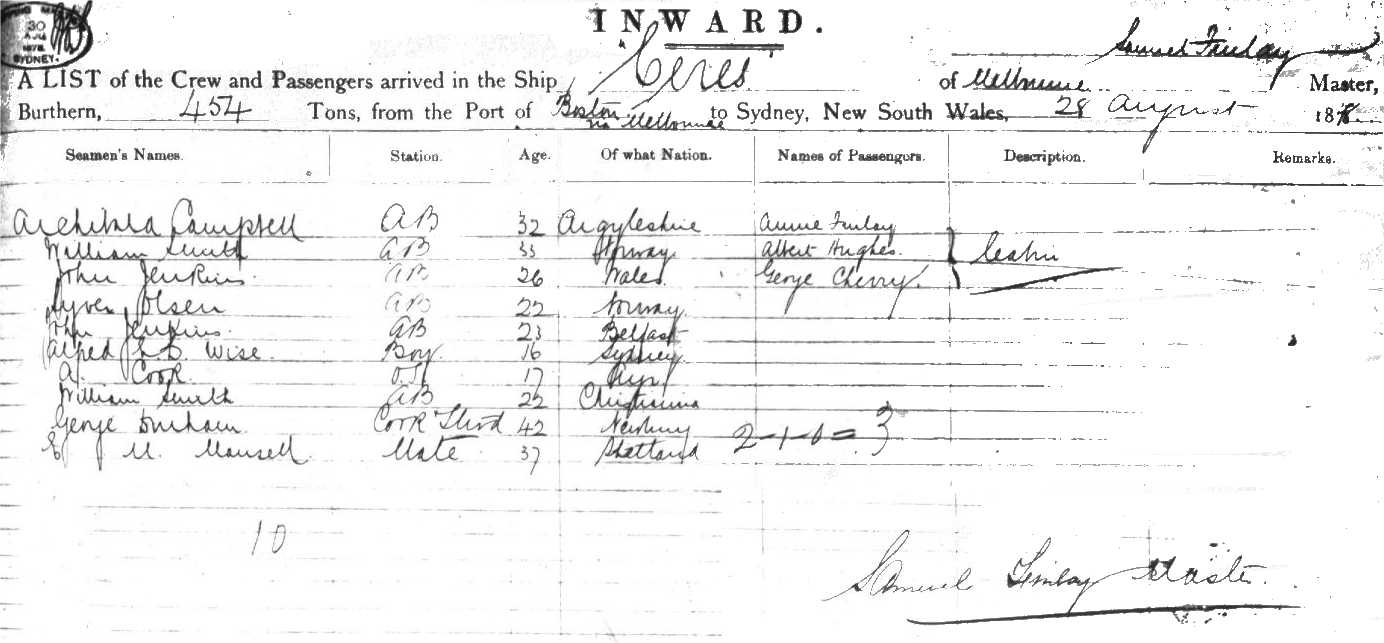 30
SYDNEY.
INWARD.
Samuel Finlay
A LIST of the Crew and Passengers arrived in the Ship "Ceres of Melbourne Master,
Burthern, 454 Tons, from the Port of Boston via Melbourne to Sydney, New South Wales, 28 August 1878
Seamen's Names. Station. Age. Of what Nation. Names of Passengers. Description. Remarks.
Archibald Campbell AB 32 Argyleshire Annie Finlay
William Smith AB 33 Norway Albert Hughes. } Cabin
John Jenkins. AB 26 Wales George Cherry.
Olsen AB 22 Norway.
John Jenkins. AB 23 Belfast
Alfred Wise. Boy. 16 Sydney.
A. Cook 17
William Smith AB 22 Christiania
George Durham Cook & Stwd 42 Newbury 2-1-0 = 3
M. Mansell Mate 37 Shetland
10
Samuel Finlay Master.